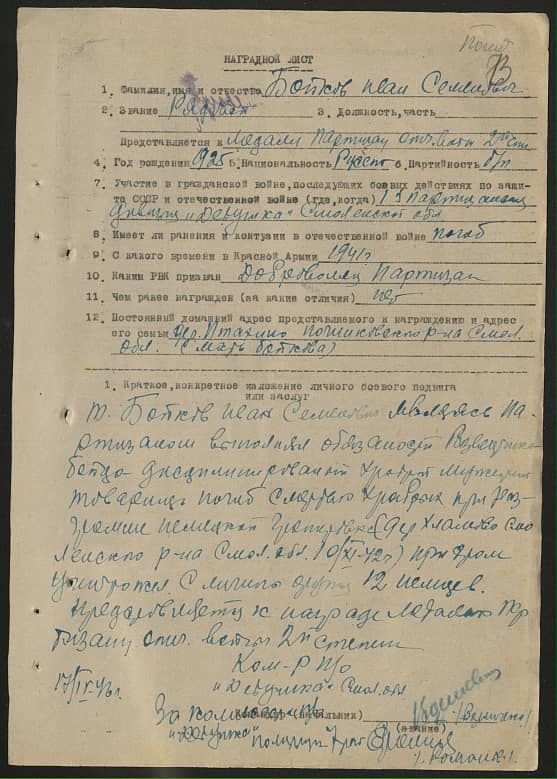 Погиб
73
НАГРАДНОЙ ЛИСТ
1. Фамилия, имя и отчество Бойков Иван Семенович
2. Звание Рядовой 3. Должность, часть
Представляется к Медали Партизан отч. войны 2ой ст.
4. Год рождения 1925 5. Национальность Русск 6. Партийность б/п
7. Участие в гражданской войне, последующих боевых действиях по защи-
те СССР и отечественной войне (где, когда) Партизанск
"Дедушка" Смоленской обл.
8. Имеет ли ранения и контузии в отечественной войне погиб
9. С какого времени в Красной Армии 1941 г
10. Каким РВК призван Доброволец Партизан
11. Чем ранее награжден (за какие отличия) нет
12. Постоянный домашний адрес представляемого к награждению и адрес
его семьи дер. Птахино Починковского р-на Смол.
обл. (Мать Бойкова)
1. Краткое, конкретное изложение личного боевого подвига
или заслуг
т. Бойков Иван Семенович являясь Па-
ртизаном выполнял обязаности
бойца дисциплинированый храбрый
товарищ погиб смертью храбрых при раз-
громе немецкой (дер. Смо
ленского р-на Смол. обл. 10/XI-42 г) при этом
уничтожил 12 немцев.
к награде Медалью Пар
тизану отч. войны 2й степени
Ком-р п/о
17/IV 43 г. "Дедушка" Смол. обл
Командир (начальник)
(звание)
"Дедушка"